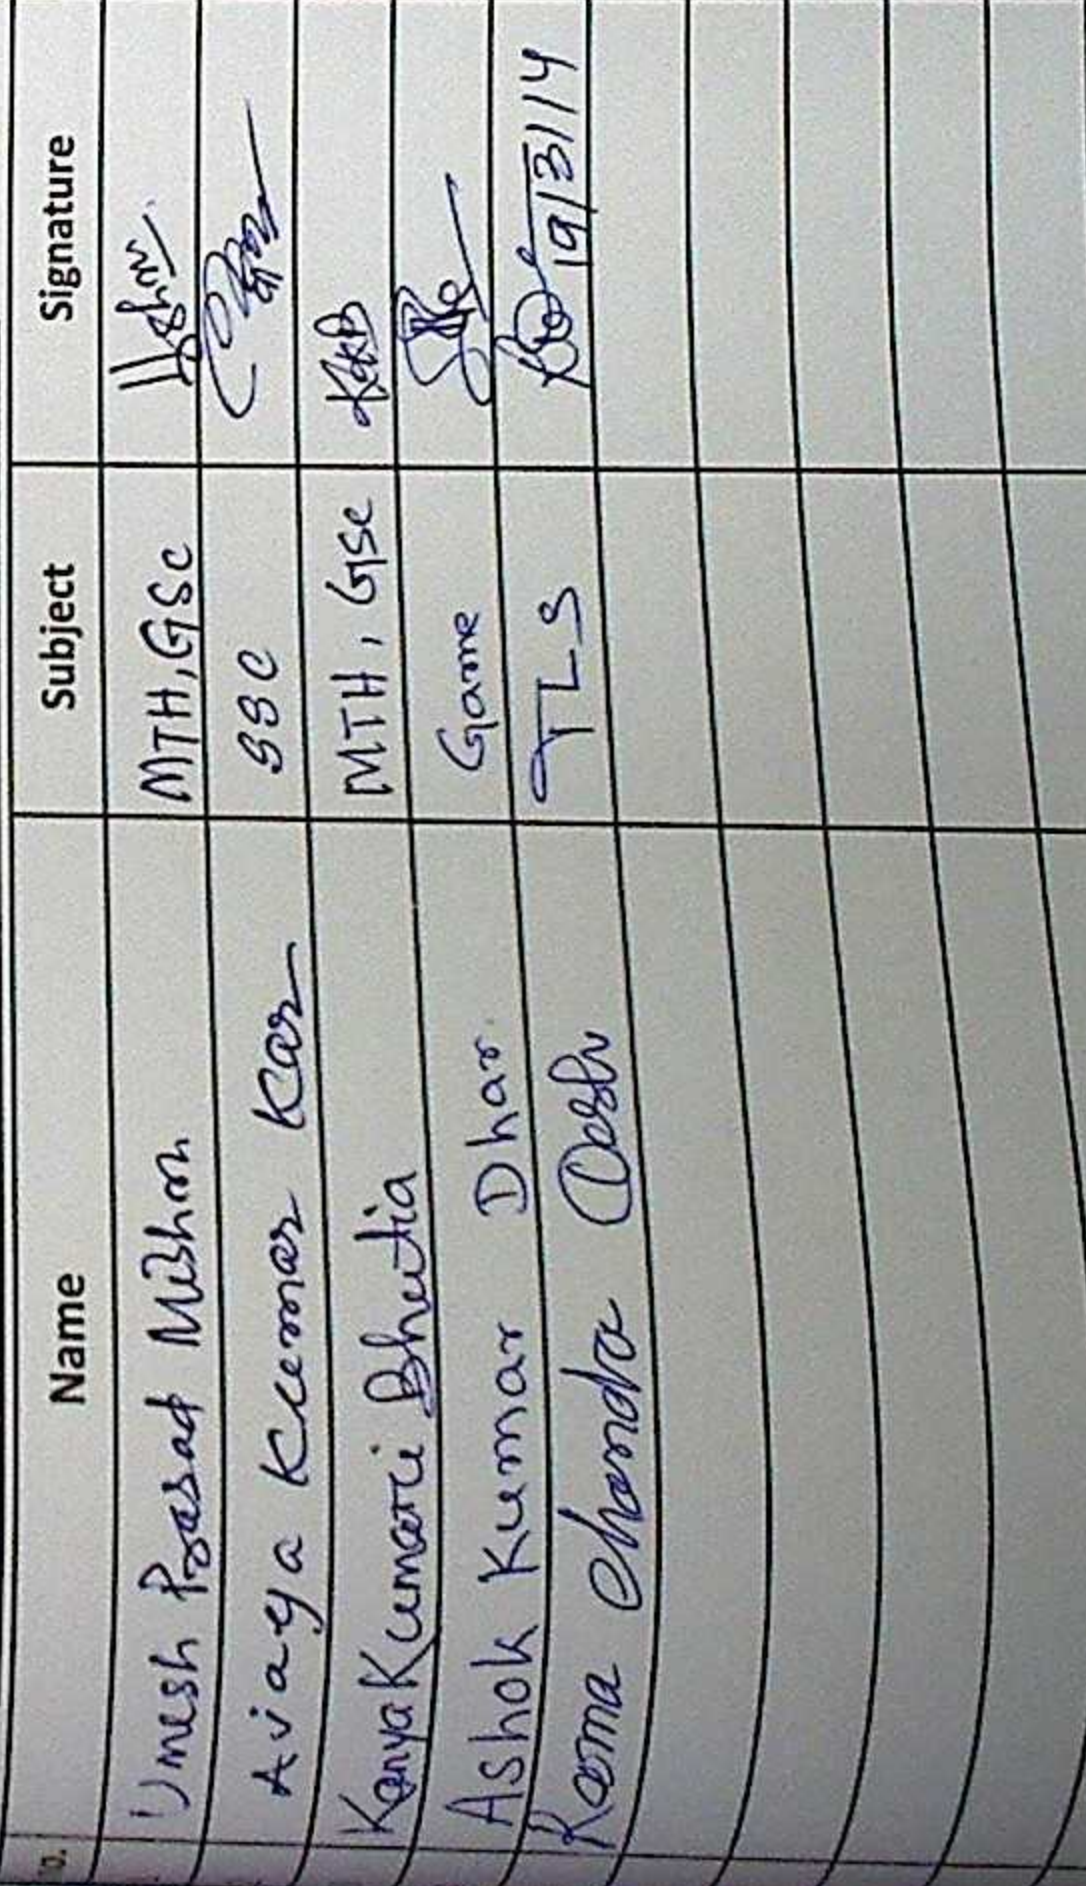 Name Subject Signature
Umesh Prasad Mishra MTH, GSC
Avijaya Kumar Kar SSC
Kanya Kumari Bhutia MTH, GSc KKB
Ashok Kumar Dhar. Game
Rama Chandra Dash TLS 19/3/14